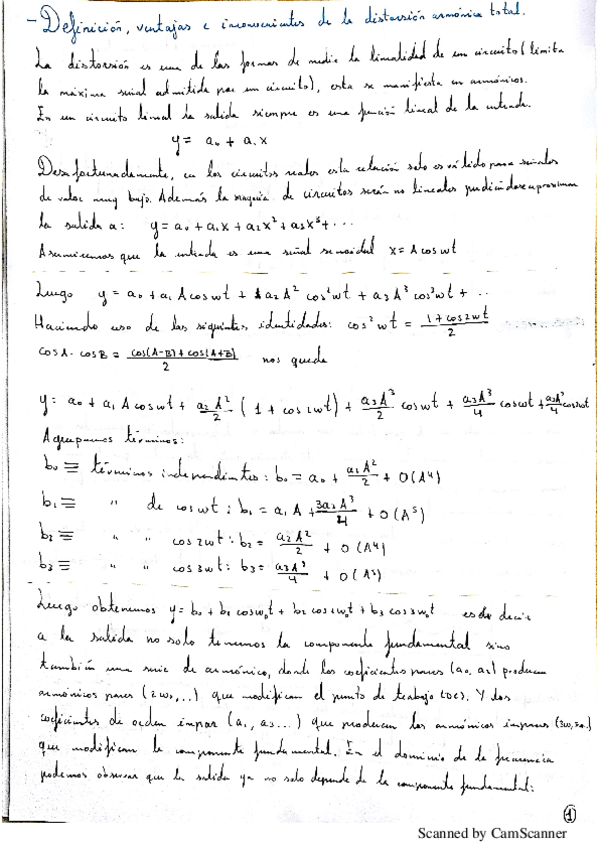 - Definición, ventajas e inconvenientes de la distorsión armónica total.
La distorsión es una de las formas de medir la linealidad de un circuito (limita
la máxima señal admitida por un circuito), esta se manifiesta en armónicos.
En un circuito lineal la salida siempre es una función lineal de la entrada.
y = a₀ + a₁x
Desafortunadamente, en los circuitos reales esta relación solo es válida para señales
de valor muy bajo. Además la mayoría de circuitos serán no lineales pudiéndose aproximar
la salida a: y = a₀ + a₁x + a₂x² + a₃x³ + ...
Asumiremos que la entrada es una señal senoidal x = A cos wt
Luego y = a₀ + a₁ A cos wt + a₂ A² cos² wt + a₃ A³ cos³ wt + ..
Haciendo uso de las siguientes identidades: cos² wt = (1 + cos 2wt)/2
cos A · cos B = (cos(A-B) + cos(A+B))/2 nos queda
y = a₀ + a₁ A cos wt + a₂A²/2 (1 + cos 2wt) + a₃A³/2 cos wt + a₃A³/4 cos wt + a₃A³/4 cos 3wt
Agrupamos términos:
b₀ ≡ términos independientes: b₀ = a₀ + a₂A²/2 + O(A⁴)
b₁ ≡ " de cos wt : b₁ = a₁ A + 3a₃A³/4 + O(A⁵)
b₂ ≡ " " cos 2wt : b₂ = a₂A²/2 + O(A⁴)
b₃ ≡ " " cos 3wt : b₃ = a₃A³/4 + O(A⁵)
Luego obtenemos y = b₀ + b₁ cos w₀t + b₂ cos 2w₀t + b₃ cos 3w₀t es decir
a la salida no solo tenemos la componente fundamental sino
también una serie de armónico, donde los coeficientes pares (a₀, a₂) producen
armónicos pares (2w₀,...) que modifican el punto de trabajo (DC). Y los
coeficientes de orden impar (a₁, a₃...) que producen los armónicos impares
que modifican la componente fundamental. En el dominio de la frecuencia
podemos observar que la salida ya no solo depende de la componente fundamental:
1
Scanned by CamScanner